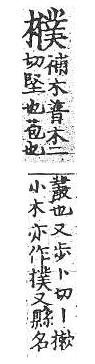 樸
補木普木二
切堅也苞也
叢也又步卜切丨樕
小木亦作樸又縣名